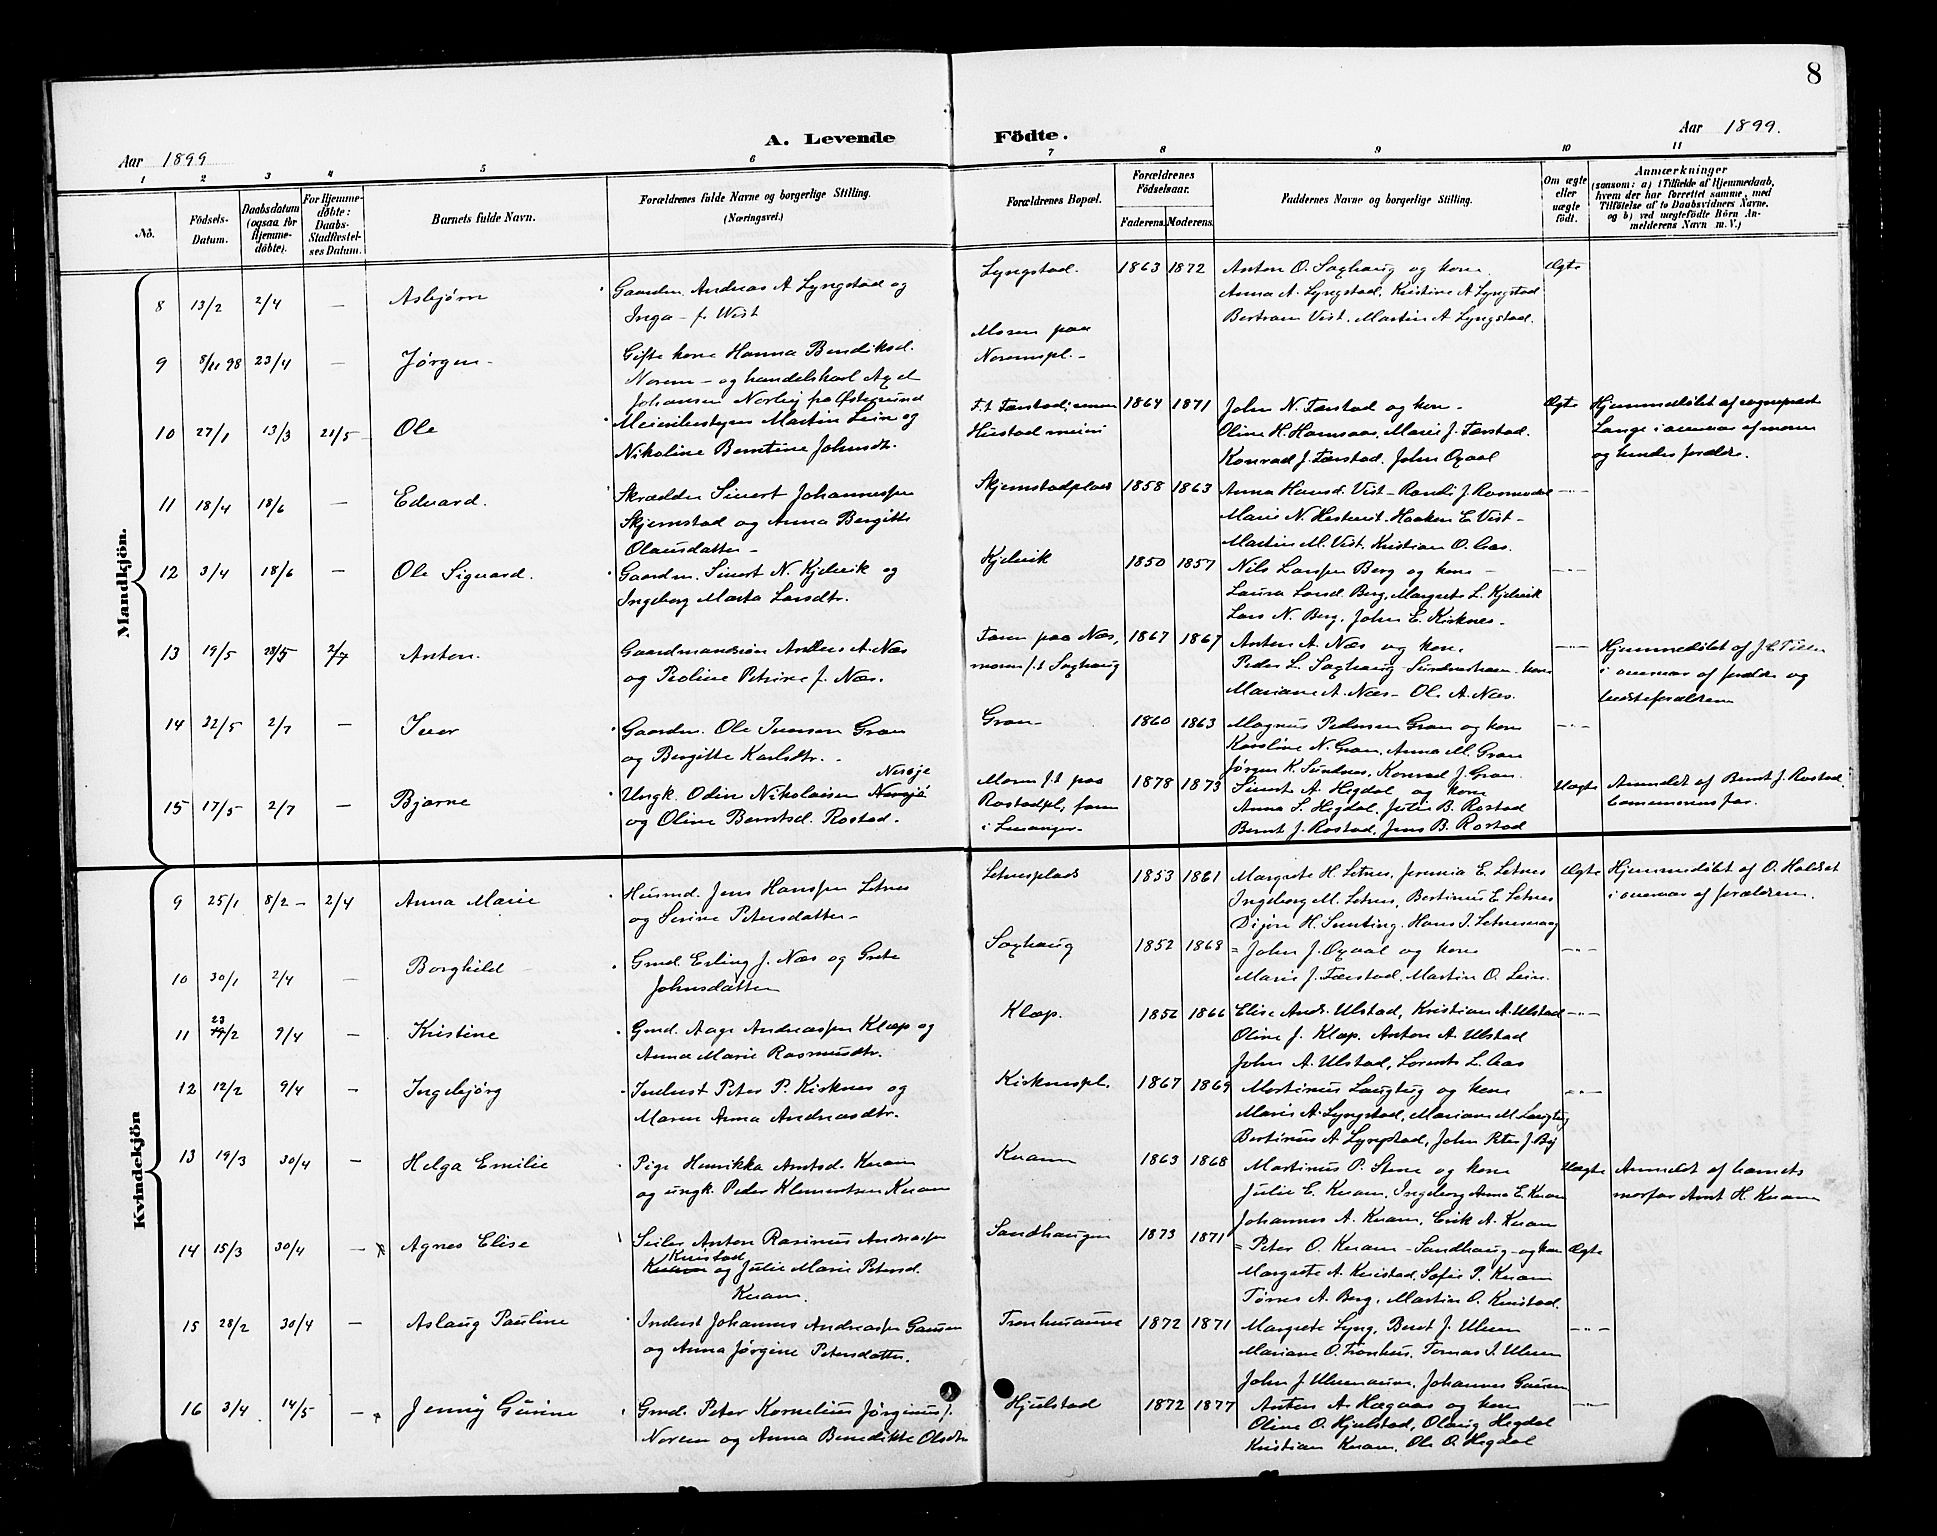 8
A. Levende Födte.
Aar 1899
Aar 1899.
1 2 3 4 5 6 7 8 9 10 11
No. Födsels-Datum. Daabsdatum (ogsaa for Hjemmedøbte). For Hjemmedøbte: Daabs-Stadfæstelses Datum. Barnets fulde Navn. Forældrenes fulde Navne og borgerlige Stilling. (Næringsvei.) Forældrenes Bopæl. Forældrenes Födselsaar. Faderens. Moderens. Faddernes Navne og borgerlige Stilling. Om ægte eller uægte födt. Anmærkninger (saasom: a) i Tilfælde af Hjemmedaab, hvem der har forrettet samme, med Tilføielse af to Daabsvidners Navne, og b) ved uægtefödte Börn Anmelderens Navn m. V.)
Mandkjön.
8 13/2 2/4 — Asbjørn Gaardm. Andreas A Lyngstad og Lyngstad. 1863 1872 Anton O. Saxhaug og kone Ægte
Inga — f. Vist Anna A. Lyngstad, Kristine A Lyngstad
Bertram Vist, Martin A Lyngstad.
9 8/11 98 23/4 — Jørgen — Gifte kone Hanna Bendiksd. Moren paa
Norem — og handelskarl Axel Noremspl. —
Johansen Norbey fra Østersund
10 27/1 13/3 21/5 Ole Meieribestyrer Martin Lein og F.t. Færstad, 1864 1871 John N. Færstad og kone — Ægte Hjemmedøbt af sogneprest
Nikoline Berntine Johnsdt. Hustad meieri Oline H. Hamsaas, Marie J. Færstad. Lange i overvær af moren
Konrad J. Færstad. John Oxaal og hendes forældre.
11 18/4 18/6 — Edvard. Skrædder Sivert Johannessen Skjemstadplads 1858 1863 Anna Hansd. Vist — Randi J. —"—
Skjemstad og Anna Bergitte Marie N. Hestvist. Haaken E. Vist —
Olausdatter — Martin M. Vist. Kristian O. Aas.
12 3/4 18/6 — Ole Sigvard. Gaardm. Sivert N. Kjelvik og Kjelvik 1850 1857 Nils Larssen Berg og kone — —"—
Ingeborg Marta Larsdtr. Laura Larsd. Berg, Margrete L. Kjelvik
Lars N. Berg, John E. Kirknes.
13 19/5 28/5 2/7 Anton. Gaardmandssøn Anders A. Næs Faren paa Næs, 1867 1867 Anton A. Næs og kone —"— Hjemmedøbt af J.
og Pauline Petrine f. Næs. moren f.t Saxhaug Peder L. Saxhaug — kone i overvær af forældre og
Mariane A. Næs — Ole A. Næs. bedsteforældrene
14 22/5 2/7 — Iver Gaardm. Ole Iversen Gran Gran — 1860 1863 Magnus Pedersen Gran og kone —"—
og Bergitte Karlsdtr. — Karoline N. Gran, Anna M. Gran
Jørgen K. Sundnes, Konrad J. Gran.
15 17/5 2/7 — Bjarne Ungk. Odin Nikolaisen Nersøie Moren f.t paa 1878 1873 Sivert A. Hegdal og kone Uægte Anmeldt af Bernt J. Rostad,
og Oline Berntsd. Rostad. Rostadpl., faren Anna S. Hegdal, Jutte B. Rostad
i Levanger — Bernt J. Rostad, Jens B. Rostad
Kvindekjön
9 25/1 8/2 — 2/4 Anna Marie Husmd. Jens Hanssen Letnes Letnesplads 1853 1861 Margrete H. Letnes, Jeremia E. Letnes Ægte Hjemmedøbt af O. Haldset
og Serine Petersdatter — Ingeborg M. Letnes, Bertinus E. Letnes i overvær af forældrene.
H. Hans J.
10 30/1 2/4 — Borghild Gmd. Erling J. Næs og Grete Saxhaug 1852 1868 = John J. Oxaal og kone —"—
Johnsdatter Marie J. Færstad. Martin O. Lein.
11 23/2 9/4 — Kristine Gmd. Aage Andreassen Klæp og Klæp. 1852 1866 Elise Andr. Ulstad, Kristian A. Ulstad —"—
Anna Marie Rasmusdtr. Oline J. Klæp. Anton A. Ulstad
John A. Ulstad, Lorents L. Aas
12 12/2 9/4 — Ingebjørg Inderst Peter P. Kirknes og Kirknespl. 1867 1869 Mortinus Laugtug og kone —"—
Maren Anna Andreasdtr. Marie A. Lyngstad, Mariane M. Laugtug
Bertinus A Lyngstad, John Peter J. By
13 19/3 30/4 — Helga Emilie Pige Henrikka Arntsd. Kvam Kvam 1863 1868 Martinus P. Stene og kone Uægte Anmeldt af barnets
og ungk. Peder Klementsen Kvam Julie E. Kvam, Ingeborg Anna E. Kvam morfar Arnt H. Kvam
Johannes A. Kvam, Erik A. Kvam
14 15/3 30/4 — Agnes Elise Seiler Anton Rasinus Andreassen Sandhaugen 1873 1871 = Peter O. Kvam — Sandhaug — og kone Ægte
Kvistad og Julie Marie Petersd. Margrete A. Kvistad, Sofie P. Kvam
Kvam. Tørres A. Berg, Martin O. Kvistad.
15 28/2 30/4 — Aslaug Pauline Inderst Johannes Andreassen Gausen Tronhusaune 1872 1871 Margrete Lyng, Bernt J. Ulven —"—
og Anna Jørgine Petersdatter. Mariane O. Tronhus. Tomas J. Ulven
John J. Ulvenaune, Johannes Gausen
16 3/4 14/5 — Jenny Gusine Gmd. Peter Kornelius Jørginus f. Hjulstad 1872 1877 Anton A. Hægaas og kone —"—
Norem og Anna Benedikte Olsdtr Oline O. Hjulstad, Olaug Hegdal
Kristian Kvam, Ole O. Hegdal